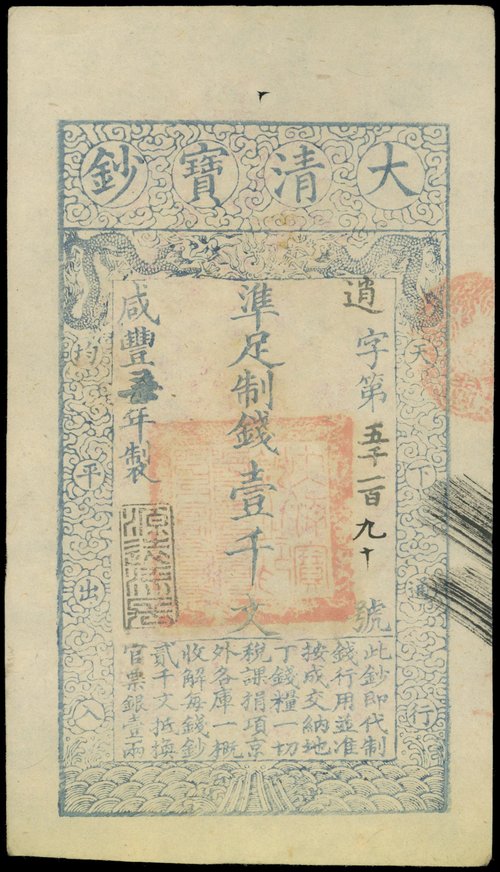 大清寶鈔
天下通行
逍字第五千一百九十號
準足制錢壹千文
咸豐年製
均平出入
此鈔即代制
錢行用並准
按成交納地
丁錢糧一切
稅課捐項京
外各庫一概
收解每錢鈔
貳千文抵換
官票銀壹兩